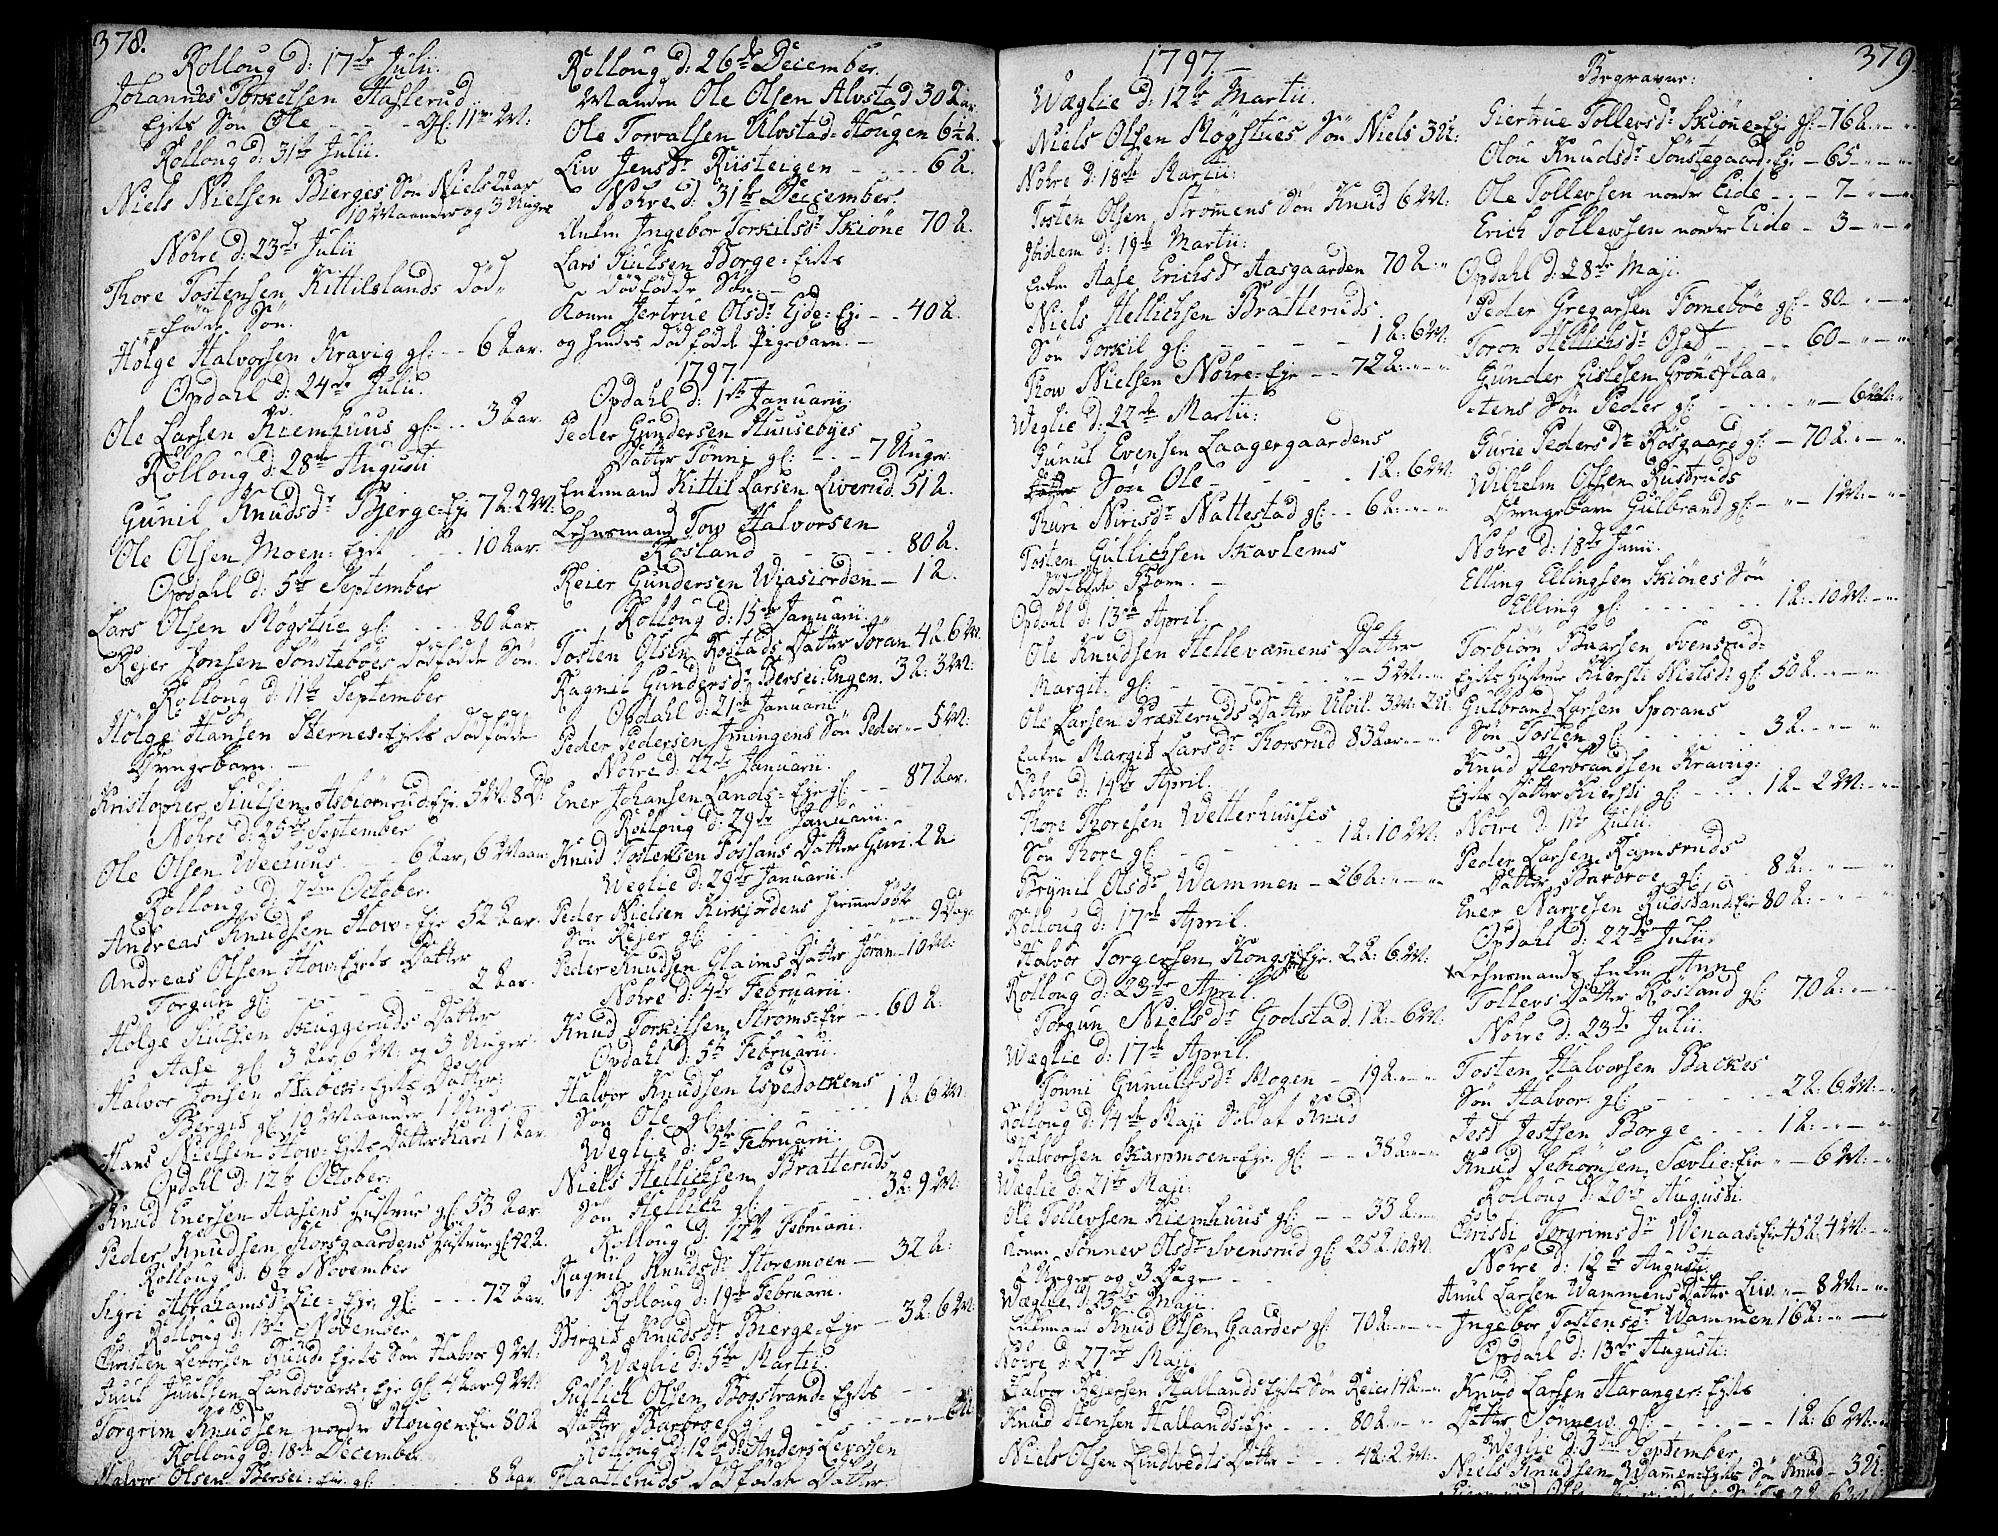 378.
Rolloug d: 17de Julii.
Johannes Torkelsen Haslerud
Ejets Søn Ole - - - gl: 11 M.
Rolloug d: 31te Julii.
Niels Nielsen Bierges Søn Niels 2 Aar
10 Maaneder og 3 Uger
Nohre d: 23de Julii
Thore Tostensen Kittilslands død-
=fødde Søn.
Holge Halvorsen Kravig gl: - - 6 Aar.
Opdahl d: 24de Julii.
Ole Larsen Kiemhuus gl: - - 3 Aar.
Rolloug d: 28de Augusti
Gunil Knudsdr Bjerge=Eje 7 A: 2 M:
Ole Olsen Moen=Ejet - - - 10 Aar.
Opdahl d: 5te September
Lars Olsen Møgstue gl: - - - 80 Aar.
Rejer Jonsen Sønsteböes dødfødde Søn.
Rolloug d: 11te September
Holge Hansen Sternes=Ejets dødfødde
Drengebarn. -
Kristopher Siulsen Asbiørnrud=Eje. 5 M. 8 D:
Nohre d: 25de September
Ole Olsen Weehuus - - 6 Aar, 6 Maan:
Rolloug d: 2den October.
Andreas Knudsen How=Eje 52 Aar.
Andreas Olsen How=Ejets Datter
Torgun gl: - - - - - 2 Aar.
Holge Siulsen Skuggeruds Datter
Aase gl: 3 Aar, 6 M: og 3 Uger.
Halvor Jonsen Staben=Ejets Datter
Bergit gl: 10 Maaneder, 1 Uge. -
Hans Nielsen How=Ejets Datter Kari 1 Aar.
Opdahl d: 12te October.
Knud Enersen Aasens Hustrue gl: 53 Aar.
Peder Knudsen Korsgaardens Hustrue gl: 42 A.
Rolloug d: 6te November
Sigri Abrahamsdr Lie=Eje gl: - - - 72 Aar.
Rolloug d: 13de November
Christen Levorsen Ruud=Ejets Søn Halvor 9 M:
Juul Juulsen Landsværk=Eje gl: 4 Aar 9 M:
Torgrim Knudsen nordre Hougen=Eje 80 A
Rolloug d: 18de December
Halvor Olsen Bersei=Eje gl: - - - 8 Aar.
Rolloug d: 26de December.
Manden Ole Olsen Alvstad 30 Aar.
Ole Torvalsen Alvstad=Hougen 6½ A.
Liv Jensdr Riisteigen - - - 6 A.
Nohre d: 31te December.
Enken Ingebor Torkilsdr Skiöne 70 A.
Lars Siulsen Borge=Ejets
dødfødde Søn. -
Konen Jertrue Olsdr Eide=Eje - - 40 A.
og hendes dødfødde Pigebarn. -
1797.
Opdahl d: 1ste Januarii.
Peder Gundersen Huusebyes
Datter Tønni gl: - - - 7 Uger.
Enkemand Kittil Larsen Liverud. 51 A.
Lehnsmand Tow Halvorsen
Rosland - - - - 80 A.
Reier Gundersen Wiasiorden - 1 A.
Rolloug d: 15de Januarii.
Tosten Olsen Rostads Datter Jöran 4 A. 6 M.
Ragnil Gundersdr Bersei=Engen. 3 A: 3 M:
Opdahl d: 21de Januarii.
Peder Pedersen Imingens Søn Peder - - 5 M:
Nohre d: 22de Januarii.
Ener Johansen Lands=Eje gl: - - 87 Aar.
Rolloug d: 29de Januarii.
Knud Tostensen Fossans Datter Guri. 2 A
Weglie d: 29de Januarii.
Peder Nielsen Kirkjordens hiemedøbte
Søn Rejer gl: - - - - - 9 Dage
Peder Knudsen Glaims Datter Jöran - 10 M:
Nohre d: 4de Februarii
Knud Torkilsen Ströms=Eje - - - 60 A:
Opdahl d: 5te Februarii.
Halvor Knudsen Espedockens
Søn Ole gl: - - - - 1 A: 6 M:
Weglie d: 5te Februarii.
Niels Hellichsen Bratteruds
Søn Hellich gl: - - - - 3 A: 9 M:
Rolloug d: 12te Februarii.
Ragnil Knudsdr Storemoen - 32 A:
Rolloug d: 19de Februarii.
Börgit Knudsdr Bierge=Eje - - 3 A: 6 M:
Wæglie d: 5te Martii.
Gullich Olsen Bogstrand=Ejets
Datter Barbroe gl: - - - - 6 M:
Rolloug d: 12te do Anders Levorsen
Flaatteruds dødfødde Datter.
1797 -
Wæglie d: 12te Martii.
Niels Olsen Møgstues Søn Niels 3 U:
Nohre d: 18de Martii:
Tosten Olsen Strømmens Søn Knud 6 M:
Ibidem d: 19de Martii:
Enken Aase Erichsdr Aasgaarden 70 A: -
Niels Hellichsen Bratteruds
Søn Torkil gl: - - - - 1 A: 6 M:
Tow Nielsen Nohre=Eje - - 72 A: - -
Weglie d: 22de Martii:
Gunul Evensen Laagergaardens
Søn Ole - - - - - 1 A: 6 M:
Thuri Nirisdr Nattestad gl: - - 6 A: - -
Tosten Gullichsen Skavlems
dødfødde Barn. -
Opdahl d: 13de April.
Ole Knudsen Hellevammens Datter
Margit gl: - - - - - - 5 M: - -
Ole Larsen Præsteruds Datter Ulvil. 3 M: 2 U:
Enken Margit Larsdr Thorsrud 83 Aar - -
Nohre d: 14de April.
Thore Thoresen Wetterhuuses
Søn Thore gl: - - - - 1 A: 10 M:
Brynil Olsdr Wammen - 26 A: - -
Rolloug d: 17de April.
Halvor Torgersen Kongsje=Eje. 2 A: 6 M:
Rolloug d: 23de April.
Torgun Nielsdr Godstad. 1 A: - 6 M:
Wæglie d: 17de April.
Tönni Gunulfsdr Mogen - 19 A: - -
Rolloug d: 14de Maji Soldat Knud
Halvorsen Skarpmoen=Eje gl: - - 38 A: - -
Wæglie d: 21de Maji:
Ole Tollevsen Kiemhuus gl: - - 33 A: - -
Konen Sønnev Olsdr Svensrud gl: 25 A: 10 M:
2 Uger og 3 Dage -
Wæglie d: 25de Maji.
Enkemand Knud Olsen Gaarder gl: 70 A: - -
Nohre d: 27de Maji.
Halvor Rejersen Hallands=Ejets Søn Reier 14 A: - -
Knud Stensen Hallands=Eje - - - 80 A: - -
Niels Olsen Lindtvedts Datter - - - 4 A: 2 M: -
379
Begravne:
Giertrue Tollevsdr Skiöne=Eje gl: - 76 A: - -
Olou Knudsdr Sønstegaard=Eje - 65 - - -
Ole Tollevsen nordre Eide - - - 7 - - -
Erich Tollevsen nordre Eide - 3 - - -
Opdahl d: 28de Maji.
Peder Gregarsen Tornebøe gl: - 80 - - -
Toron Hellichsdr Oset - - - 60 - - -
Gunder Gislesen Grøneflaa-
=tens Søn Peder gl: - - - - 6 M: -
Gurie Pedersdr Rosgaard gl: - 70 A: - -
Wilhelm Olsen Rustruds
Drengebarn Gulbrand gl: - - 1 M: - -
Nohre d: 18de Junii.
Elling Ellingsen Skiönes Søn
Elling gl: - - - - - - 1 A: - 10 M: -
Torbiörn Baarsen Svensrud-
Ejets Hustrue Kiersti Nielsdr gl: 50 A: - -
Gulbrand Larsen Sporans
Søn Tosten gl: - - - - - 3 A: - -
Knud Herbrandsen Kravig-
Ejets Datter Kiersti gl: - - - - 1 A - 2 M: -
Nohre d: 11te Julii.
Peder Larsen Ramsruds
Datter Barbroe gl: - - - 8 A: - -
Ener Narvesen Rudstand=Eje 80 A: - -
Opdahl d: 22de Julii.
x Lehnsmands Enken Anne
Tollevs Datter Rosland gl: 70 A: - -
Nohre d: 23de Julii.
Tosten Halvorsen Backes
Søn Halvor gl: - - - - - 2 A: 6 M: -
Jest Jestsen Borge - - - 1 A: - -
Knud Sebiörnsen Sævlie=Eje - - 6 M: -
Rolloug d: 20de Augusti
Christi Torgrimsdr Wenaas=Eje 45 A: 4 M: -
Nohre d: 12te Augusti.
Anul Larsen Wammens Datter Liv. - - 8 M: -
Ingebor Tostensdr Wammen 16 A: - -
Opdahl d: 13de Augusti:
Knud Larsen Haranger=Ejets
Datter Sønnew gl: - - - - - 1 A: 6 M: -
Weglie d: 3die September
Niels Knudsen Wammen=Ejets Søn Knud - 3 U: